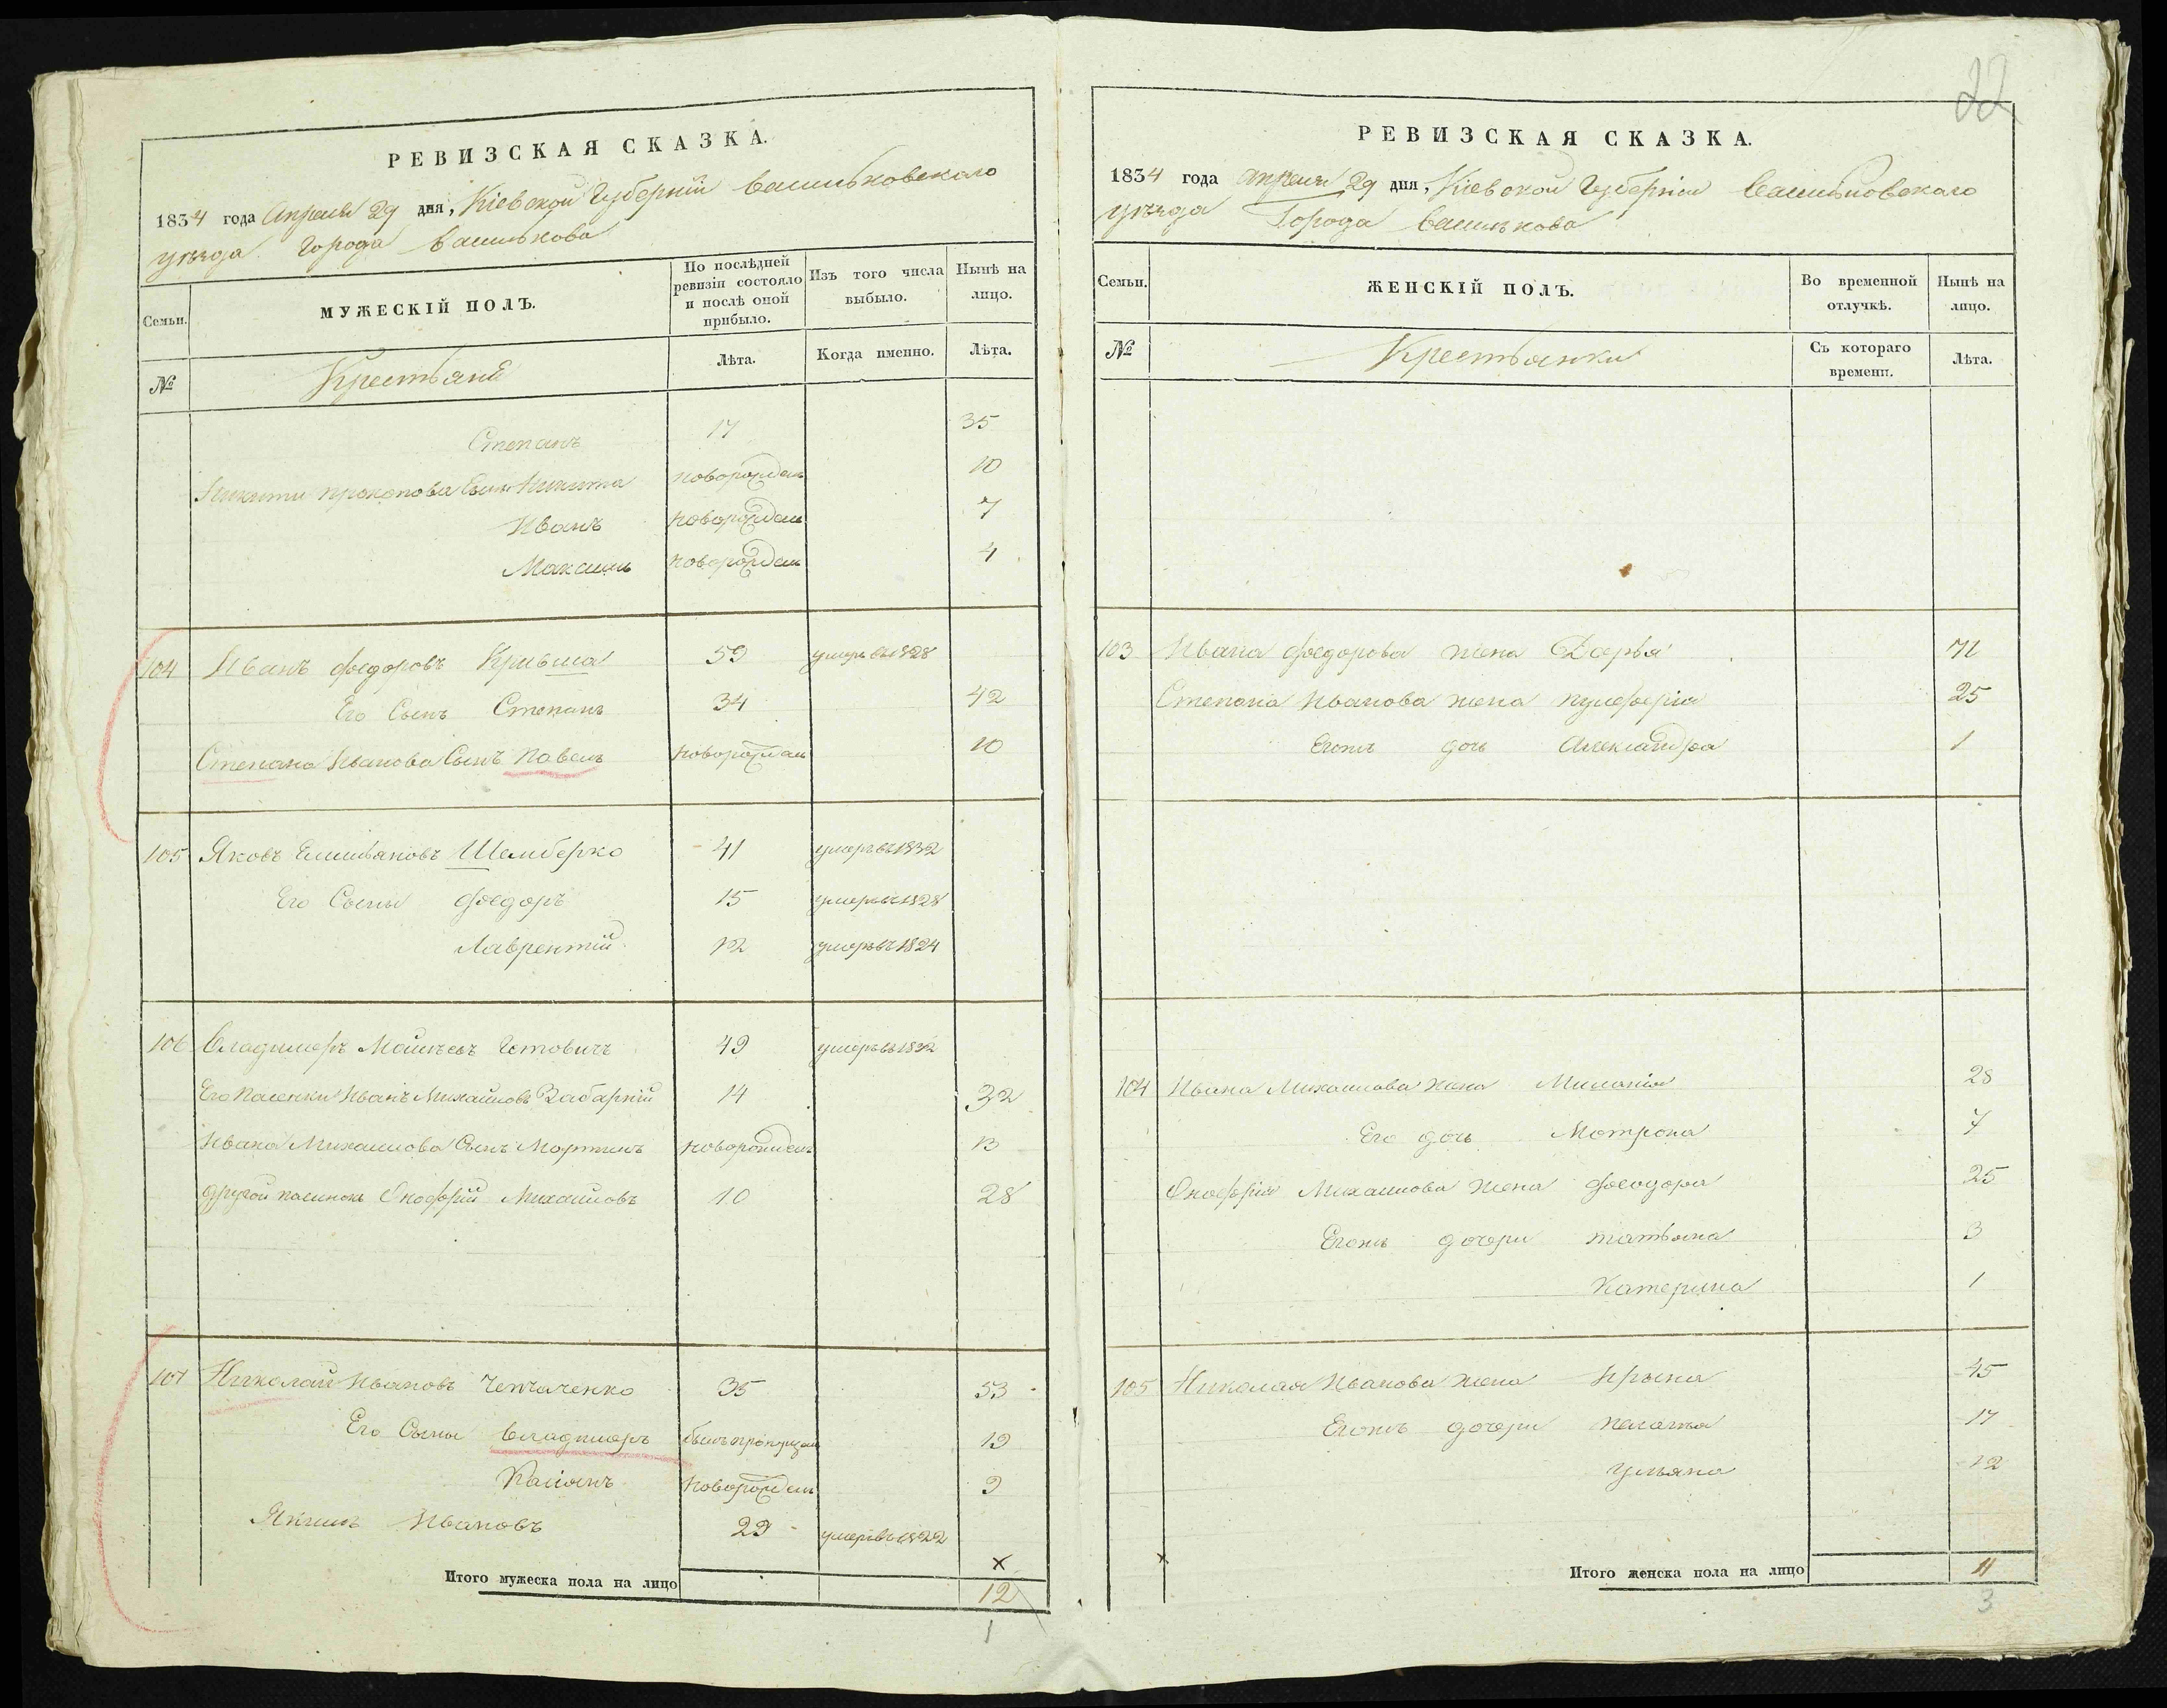 РЕВИЗСКАЯ СКАЗКА.
1834 года Апреля 29 дня, Кіевской Губерніи Васильковскаго
уезда Города Василькова
Семьи.
МУЖЕСКІЙ ПОЛЪ.
По послѣдней ревизіи состояло и послѣ оной прибыло.
Изъ того числа выбыло.
Нынѣ на лицо.
№
Крестьяне
Лѣта.
Когда именно.
Лѣта.
Степанъ 17 35
Никиты Прокопова Сынъ Никита новорожден 10
Иванъ новорожден 7
Максимъ новорожден 4
104 Иванъ Федоровъ 59 умеръ въ 1828
Его Сынъ Степанъ 34 42
Степана Иванова Сынъ Павелъ новорожден 10
105 Яковъ Емильяновъ Шемберко 41 умеръ въ 1832
Его Сыны Федоръ 15 умеръ въ 1828
Лаврентий 12 умеръ въ 1824
106 Владимеръ 49 умеръ въ 1832
Его Пасенки Иванъ Михайловъ Забарний 14 32
Ивана Михаилова Сынъ Мартинъ новорожден 13
другой пасинокъ Онофрій Михайловъ 10 28
107 Николай Ивановъ 35 53
Его Сыны Владимеръ былъ пропущен 19
Касіянъ новорожден 9
Якимъ Ивановъ 29 умеръ въ 1822
Итого мужеска пола на лицо 12
1
22
РЕВИЗСКАЯ СКАЗКА.
1834 года Апреля 29 дня, Кіевской Губерніи Васильковскаго
уезда Города Василькова
Семьи.
ЖЕНСКІЙ ПОЛЪ.
Во временной отлучкѣ.
Нынѣ на лицо.
№
Крестьянки
Съ котораго времени.
Лѣта.
103 Ивана Федорова жена Дарья 71
Степана Иванова жена Пулхерія 25
Егожъ дочь Александра 1
104 Ивана Михаилова жена Миланія 28
Его дочь Мотрона 7
Онофрія Михаилова жена Феодора 25
Егожъ дочери Татьяна 3
Катерина 1
105 Николая Иванова жена Ирына 45
Егожъ дочери Пелагѣя 17
Ульяна 12
Итого женска пола на лицо 11
3